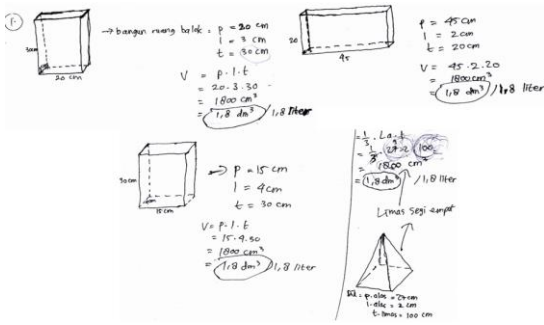 1.
30cm
20 cm
→ bangun ruang balok : p = 20 cm
l = 3 cm
t = 30 cm
V = p . l . t
= 20 . 3 . 30
= 1800 cm³
= 1,8 dm³ / 1,8 liter
20
45
p = 45 cm
l = 2 cm
t = 20 cm
V = 45 . 2 . 20
= 1800 cm³
= 1,8 dm³ / 1,8 liter
30 cm
15 cm
→ p = 15 cm
l = 4 cm
t = 30 cm
V = p . l . t
= 15 . 4 . 30
= 1800 cm³
= 1,8 dm³ / 1,8 liter
= 1/3 . La . t
= 1/3 . 27 . 2 . 100
= 1800 cm³
= 1,8 dm³ / 1,8 liter
Limas segi empat
p. alas = 27 cm
l. alas = 2 cm
t. limas = 100 cm